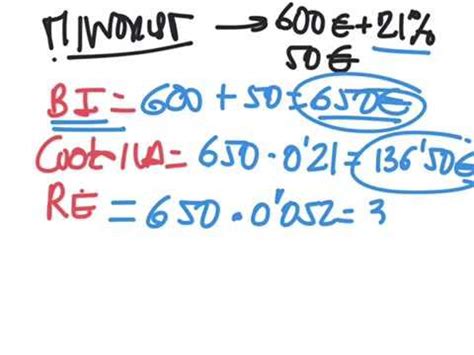 MINORIST → 600€ + 21%
50€
BI = 600 + 50 = 650€
Cuota IVA = 650 · 0'21 = 136'50€
RE = 650 · 0'052 = 3